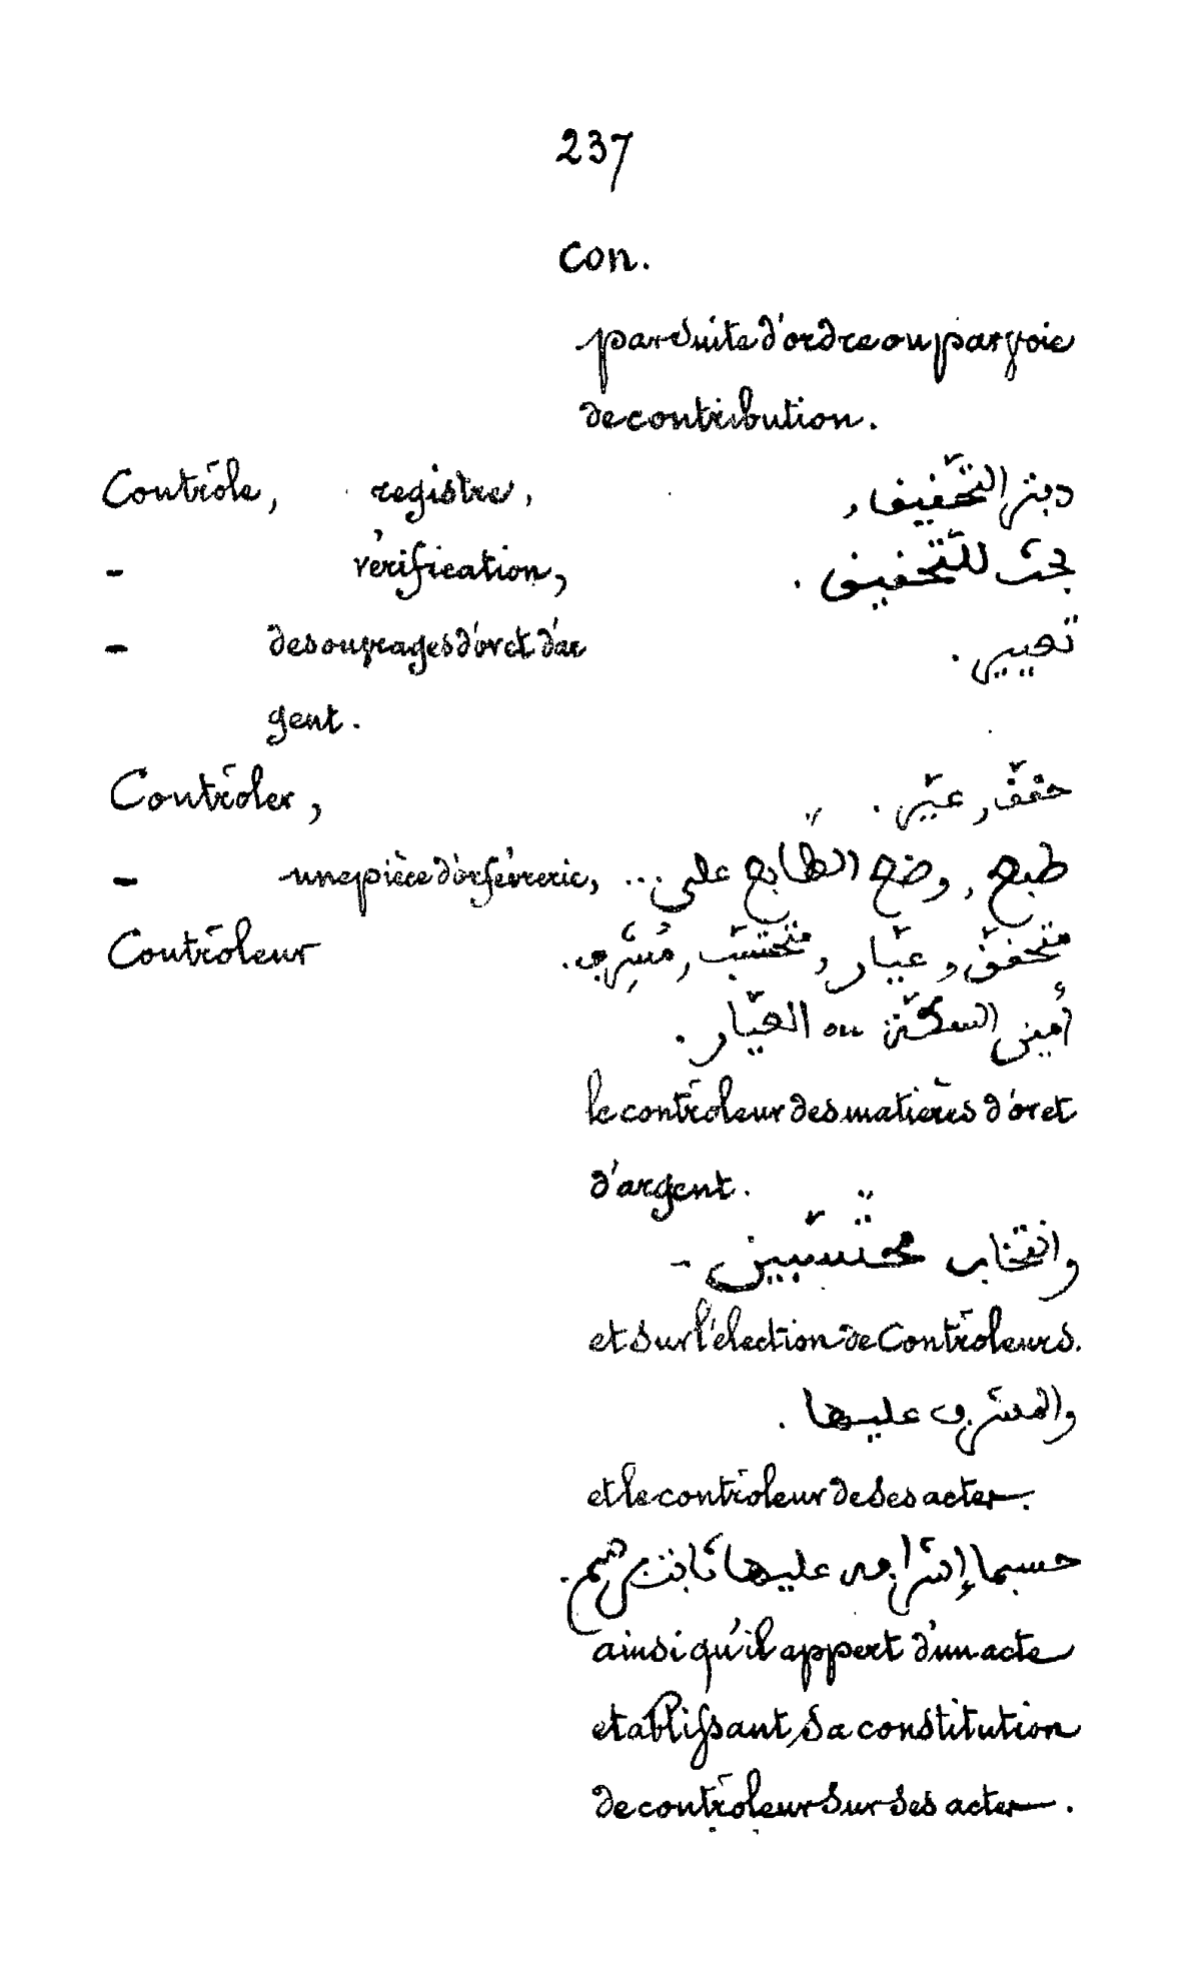 237
Con.
par suite d'ordre ou par voie
de contribution.
Contrôle, registre, دفتر التّحقيق,
- vérification, بحث للتّحقيق.
- des ouvrages d'or et d'ar تعيير.
gent.
Contrôler, حقّق, عيّر.
- une pièce d'orfèvrerie, طبع, وضع الطّابع على...
Contrôleur متحقّق, عيّار, محتسّب, مُشرِف.
أمين السكّة ou العيّار.
le contrôleur des matières d'or et
d'argent.
وانتخاب محتسّبين -
et sur l'élection de Contrôleurs.
والمشرف عليها.
et le contrôleur de ses actes.
حسبما إشرافه عليها ثابت برسم.
ainsi qu'il appert d'un acte
établissant sa constitution
de contrôleur sur ses actes.